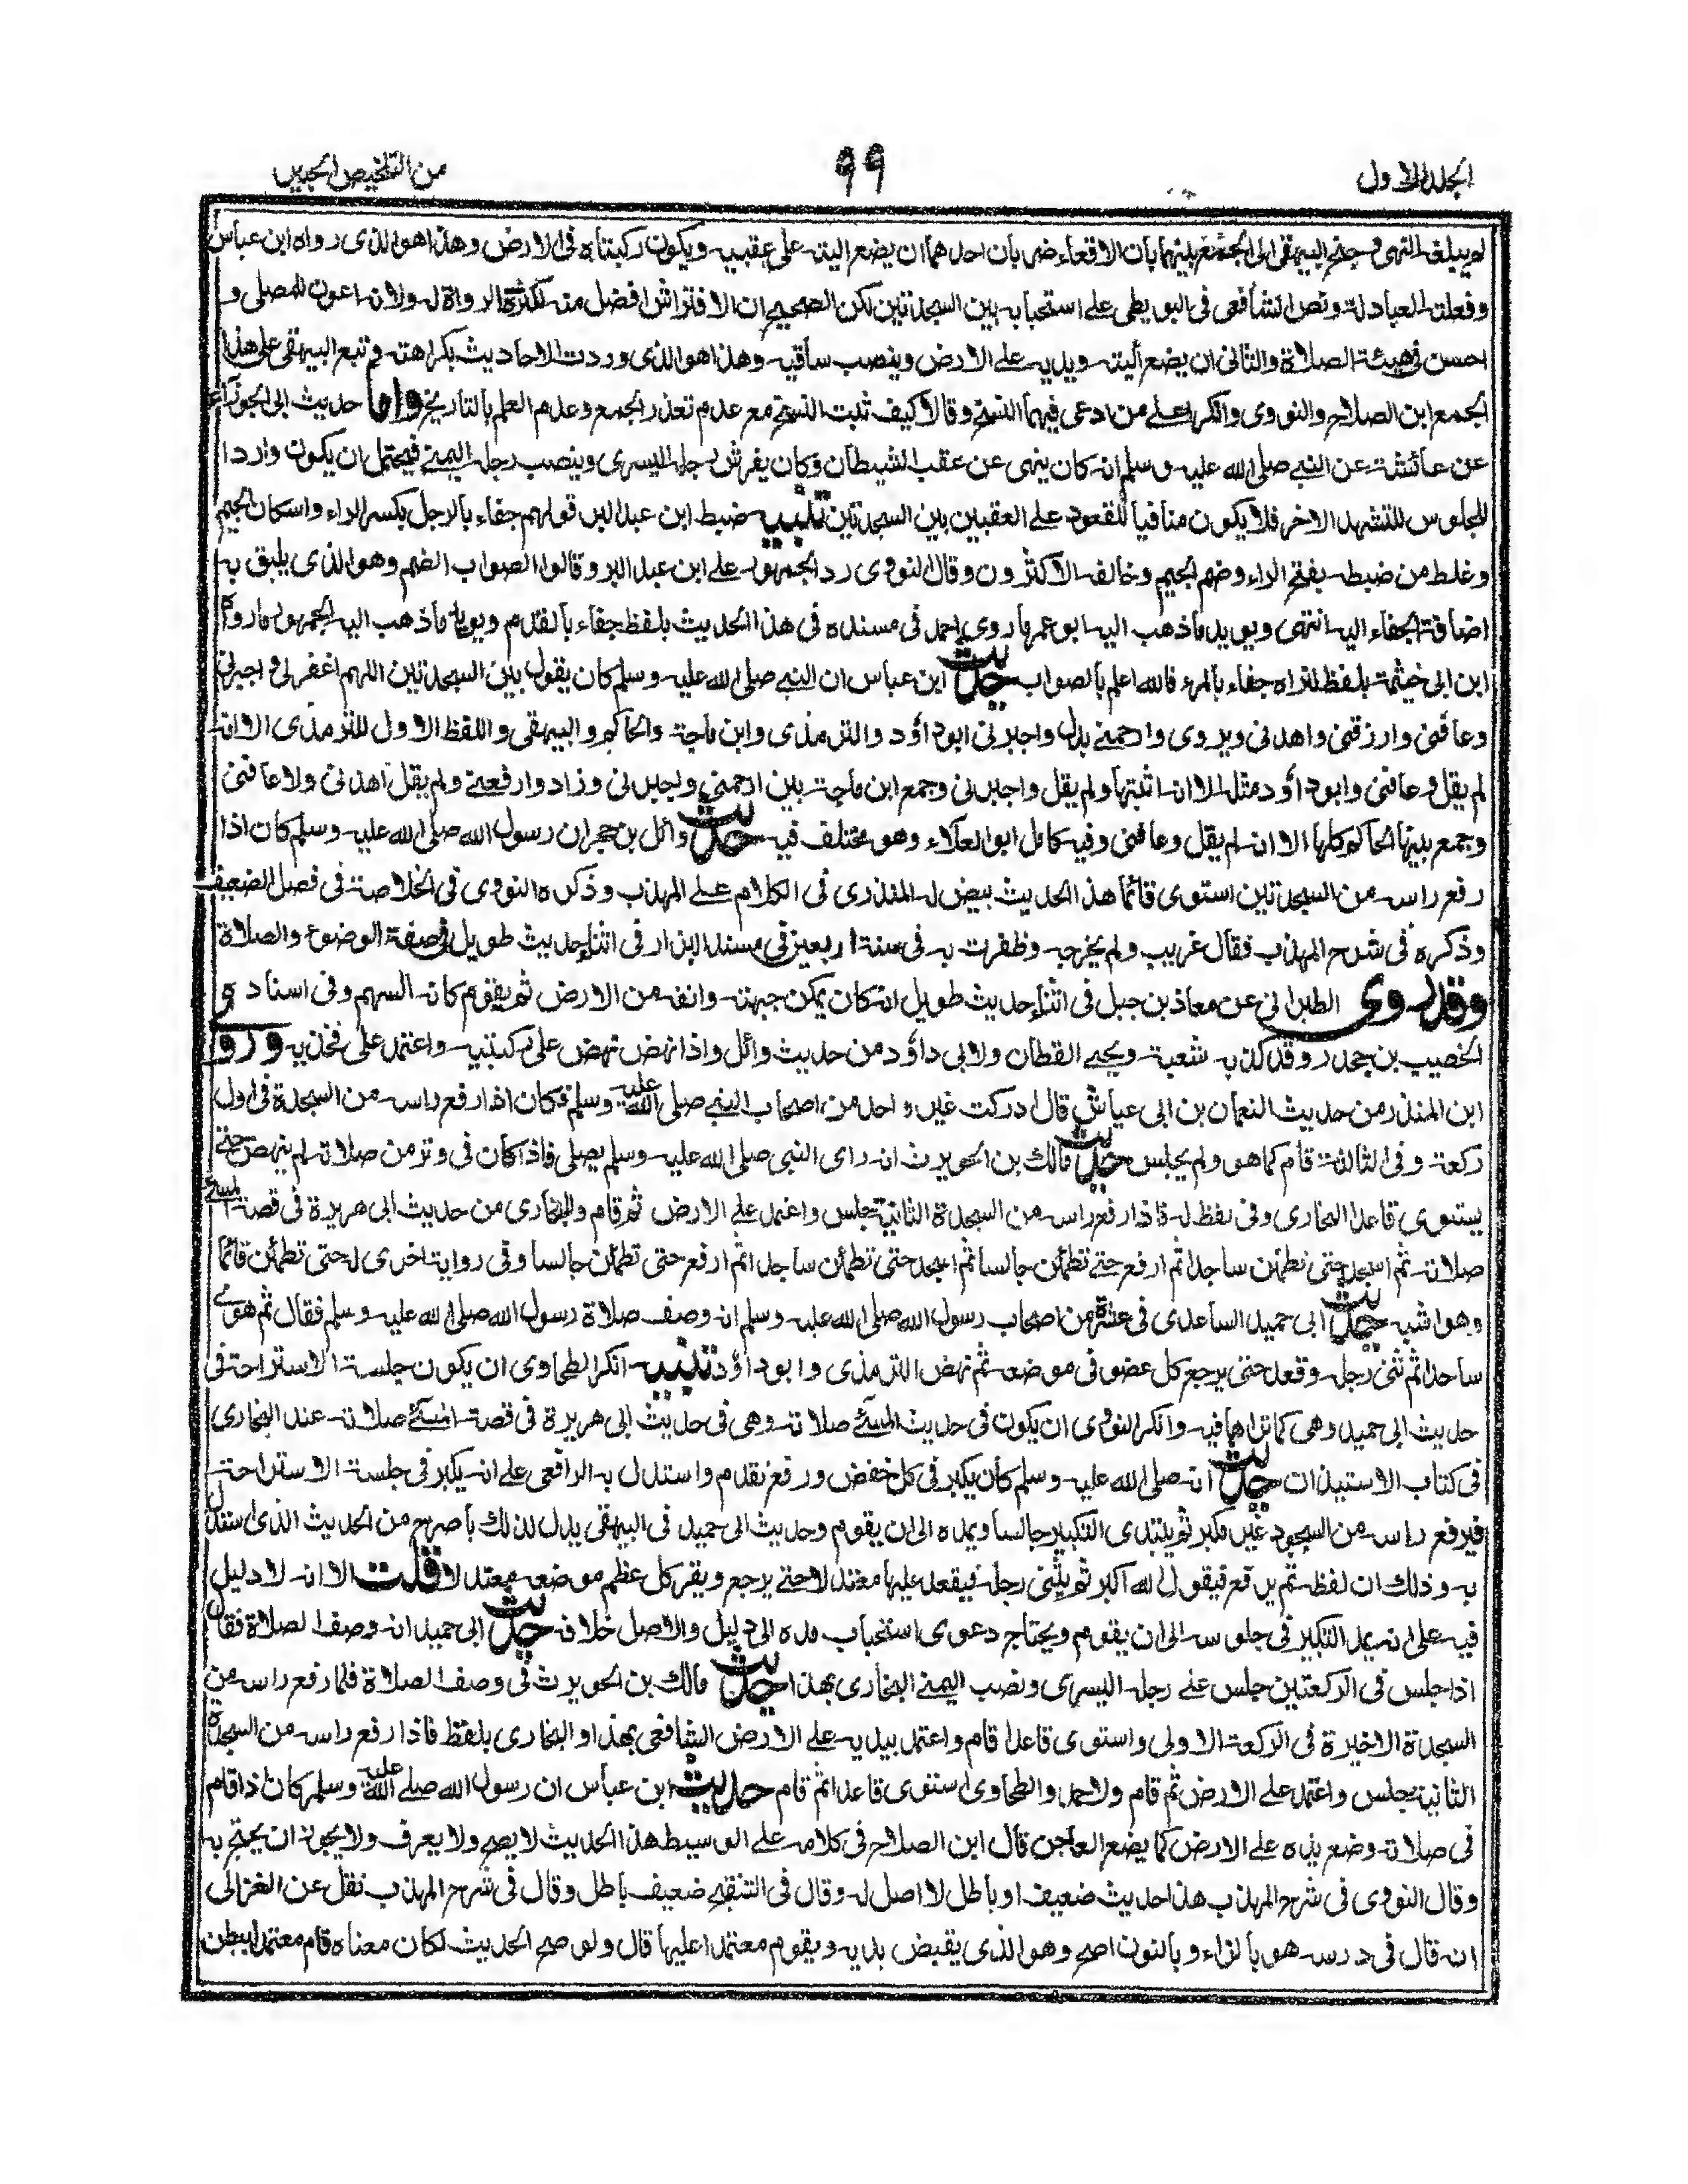 الجلد الاول
٩٩
من التلخيص الحبير
لم يبلغه النهى وجنح البيهقى الى الجمع بينهما بان الاقعاء ضربان احدهما ان يضع اليته على عقبيه ويكون ركبتاه فى الارض وهذا هو الذى رواه ابن عباس
وفعلته العبادلة ونص الشافعى فى البويطى على استحبابه بين السجدتين لكن الصحيح ان الافتراش افضل منه لكثرة الرواة له ولانه اعون للمصلى و
احسن فى هيئة الصلاة والثانى ان يضع أليته ويديه على الارض وينصب ساقيه وهذا هو الذى وردت الاحاديث بكراهته وتبع البيهقى على هذا
الجمع ابن الصلاح والنووى وانكرا على من ادعى فيهما النسخ وقالا كيف ثبت النسخ مع عدم تعذر الجمع وعدم العلم بالتاريخ واما حديث ابى الجوزاء
عن عائشة عن النبى صلى الله عليه وسلم انه كان ينهى عن عقب الشيطان وكان يفرش رجله اليسرى وينصب رجله اليمنى فيحتمل ان يكون واردا
للجلوس للتشهد الاخر فلا يكون منافيا للقعود على العقبين بين السجدتين تنبيه ضبط ابن عبد البر قولهم جفاء بالرجل بكسر الراء واسكان الجيم
وغلط من ضبطه بفتح الراء وضم الجيم وخالفه الاكثرون وقال النووى رد الجمهور على ابن عبد البر وقالوا الصواب الضم وهو الذى يليق به
اضافة الجفاء اليه انتهى ويويد ما ذهب اليه ابو عمر ما روى احمد فى مسنده فى هذا الحديث بلفظ جفاء بالقدم ويويد ما ذهب اليه الجمهور ما رواه
ابن ابى خيثمة بلفظ لنراه جفاء بالمرء فالله اعلم بالصواب حديث ابن عباس ان النبى صلى الله عليه وسلم كان يقول بين السجدتين اللهم اغفر لى واجبرنى
وعافنى وارزقنى واهدنى ويروى وارحمنى بدل واجبرنى ابوداؤد والترمذى وابن ماجة والحاكم والبيهقى واللفظ الاول للترمذى الا انه
لم يقل وعافنى وابوداؤد مثله الا انه اثبتها ولم يقل واجبرنى وجمع ابن ماجة بين ارحمنى واجبرنى وزاد وارفعنى ولم يقل اهدنى ولا عافنى
وجمع بينها الحاكم كلها الا انه لم يقل وعافنى وفيه كامل ابو العلاء وهو مختلف فيه حديث وائل بن حجر ان رسول الله صلى الله عليه وسلم كان اذا
رفع راسه من السجدتين استوى قائما هذا الحديث بيض له المنذرى فى الكلام على المهذب وذكره النووى فى الخلاصة فى فصل الضعيف
وذكره فى شرح المهذب فقال غريب ولم يخرجه وظفرت به فى سنة اربعين فى مسند البزار فى اثناء حديث طويل فى صفة الوضوء والصلاة
وقد روى الطبرانى عن معاذ بن جبل فى اثناء حديث طويل انه كان يمكن جبهته وانفه من الارض ثم يقوم كانه السهم وفى اسناده
الخصيب بن جحدر وقد كذبه شعبة ويحيى القطان ولابى داؤد من حديث وائل واذا نهض نهض على ركبتيه واعتمد على فخذيه وروى
ابن المنذر من حديث النعمان بن ابى عياش قال ادركت غير واحد من اصحاب النبى صلى الله عليه وسلم فكان اذا رفع راسه من السجدة فى اول
ركعة وفى الثالثة قام كما هو ولم يجلس حديث مالك بن الحويرث انه راى النبى صلى الله عليه وسلم يصلى فاذا كان فى وتر من صلاته لم ينهض حتى
يستوى قاعدا البخارى وفى لفظ له فاذا رفع راسه من السجدة الثانية جلس واعتمد على الارض ثم قام وللبخارى من حديث ابى هريرة فى قصة المسئ
صلاته ثم اسجد حتى تطمئن ساجدا ثم ارفع حتى تطمئن جالسا ثم اسجد حتى تطمئن ساجدا ثم ارفع حتى تطمئن جالسا وفى رواية اخرى له حتى تطمئن قائما
وهو اشبه حديث ابى حميد الساعدى فى عشرة من اصحاب رسول الله صلى الله عليه وسلم انه وصف صلاة رسول الله صلى الله عليه وسلم فقال ثم هوى
ساجدا ثم ثنى رجله وقعد حتى يرجع كل عضو فى موضعه ثم نهض الترمذى وابوداؤد تنبيه انكر الطحاوى ان يكون جلسة الاستراحة فى
حديث ابى حميد وهى كما تراها فيه وانكر النووى ان يكون فى حديث المسئ صلاته وهى فى حديث ابى هريرة فى قصة المسئ صلاته عند البخارى
فى كتاب الاستيذان حديث انه صلى الله عليه وسلم كان يكبر فى كل خفض ورفع تقدم واستدل به الرافعى على انه يكبر فى جلسة الاستراحة
فيرفع راسه من السجود غير مكبر ثم يبتدى التكبير جالسا ويمده الى ان يقوم وحديث ابى حميد فى البيهقى يدل لذلك باصرح من الحديث الذى استدل
به وذلك ان لفظه ثم يرفع فيقول الله اكبر ثم يثنى رجله فيقعد عليها معتدلا حتى يرجع ويقر كل عظم موضعه معتدلا قلت الا انه لا دليل
فيه على انه يمد التكبير فى جلوسه الى ان يقوم ويحتاج دعوى استحباب مده الى دليل والاصل خلافه حديث ابى حميد انه وصف الصلاة فقال
اذا جلس فى الركعتين جلس على رجله اليسرى ونصب اليمنى البخارى بهذا حديث مالك بن الحويرث فى وصف الصلاة فلما رفع راسه من
السجدة الاخيرة فى الركعة الاولى واستوى قاعدا قام واعتمد بيديه على الارض الشافعى بهذا والبخارى بلفظ فاذا رفع راسه من السجدة
الثانية جلس واعتمد على الارض ثم قام ولاحمد والطحاوى استوى قاعدا ثم قام حديث ابن عباس ان رسول الله صلى الله عليه وسلم كان اذا قام
فى صلاته وضع يده على الارض كما يضع العاجن قال ابن الصلاح فى كلامه على الوسيط هذا الحديث لا يصح ولا يعرف ولا يجوز ان يحتج به
وقال النووى فى شرح المهذب هذا حديث ضعيف او باطل لا اصل له وقال فى التنقيح ضعيف باطل وقال فى شرح المهذب نقل عن الغزالى
انه قال فى درسه هو بالزاء وبالنون اصح وهو الذى يقبض يديه ويقوم معتمدا عليها قال ولو صح الحديث لكان معناه قام معتمدا ببطن